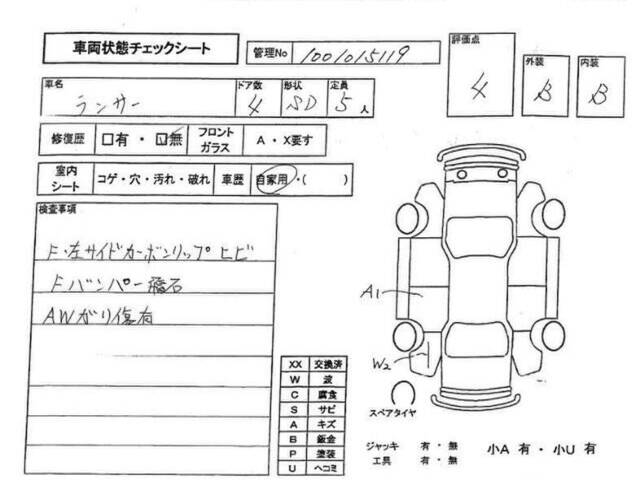 車両状態チェックシート
管理No 1001015119
評価点 4
外装 B
内装 B
車名 ランサー
ドア数 4
形状 SD
定員 5 人
修復歴 □有・☑無
フロントガラス A・X要す
室内シート コゲ・穴・汚れ・破れ
車歴 自家用・( )
検査事項
F・左サイドカーボンリップ ヒビ
Fバンパー飛石
AWガリ傷有
A1
W2
XX 交換済
W 波
C 腐食
S サビ
A キズ
B 鈑金
P 塗装
U ヘコミ
スペアタイヤ
ジャッキ 有・無
工具 有・無
小A 有・小U 有